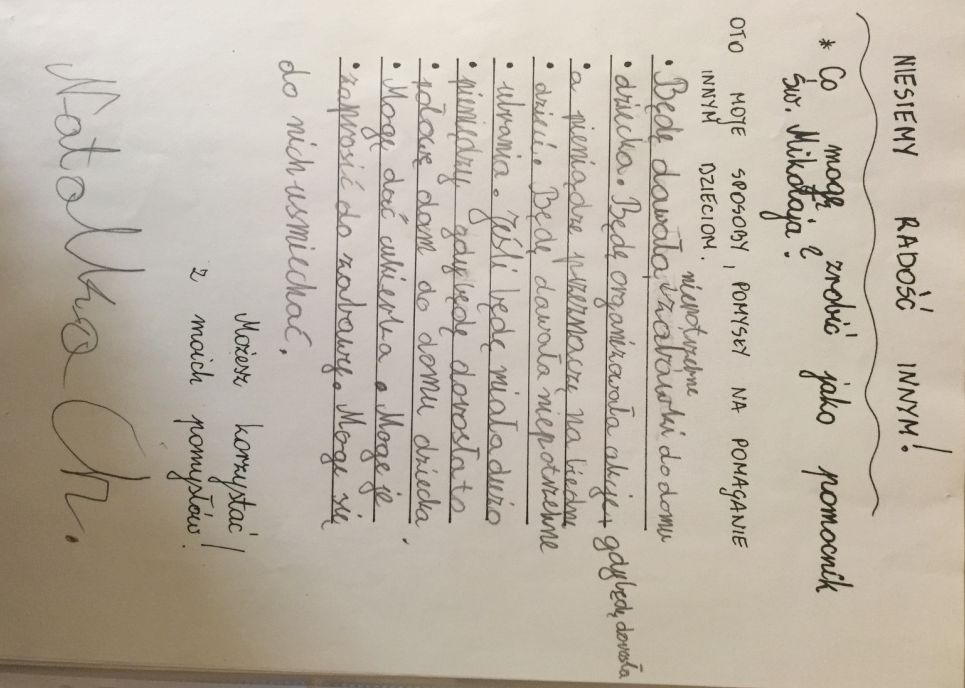 NIESIEMY RADOŚĆ INNYM!
* Co mogę zrobić jako pomocnik
św. Mikołaja?
OTO MOJE SPOSOBY, POMYSŁY NA POMAGANIE
INNYM DZIECIOM.
niepotrzebne
• Będę dawała zabawki do domu
• dziecka. Będę organizowała akcje gdy będę dorosła
• a pieniądze przeznaczę na biedne
• dzieci. Będę dawała niepotrzebne
• ubrania. Jeśli będę miała dużo
• pieniędzy gdy będę dorosła to
• połowę dam do domu dziecka.
• Mogę dać cukierka. Mogę je
• zaprosić do zabawy. Mogę się
do nich usmiechać.
Możesz korzystać
z moich pomysłów!
Natalka Ch.